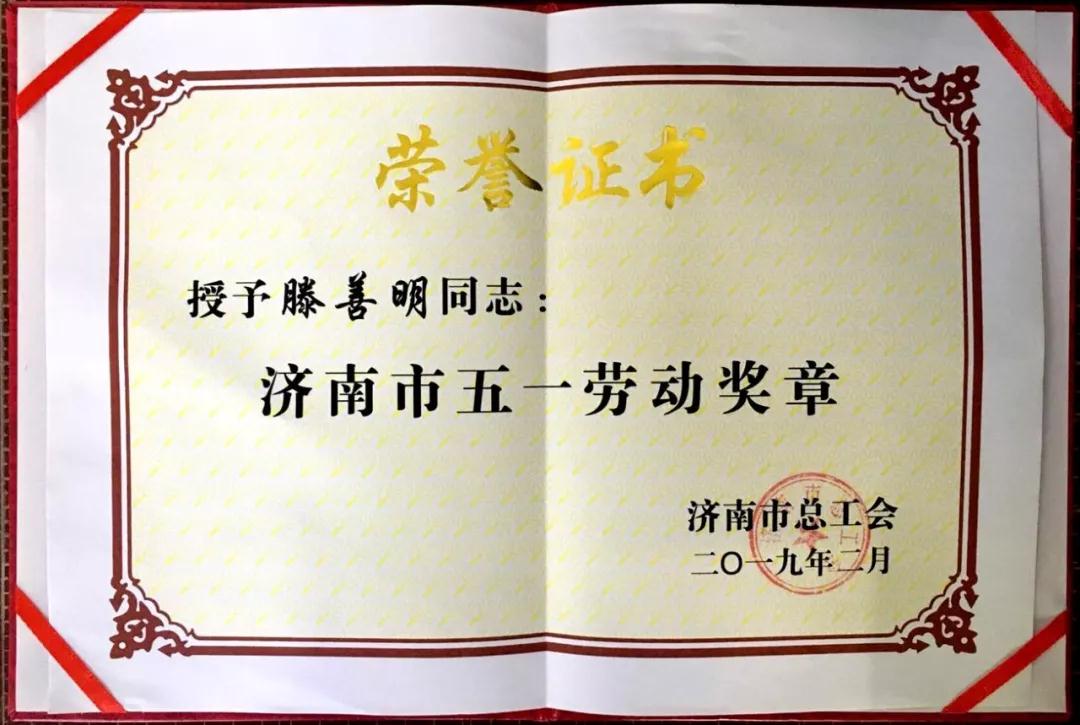 荣誉证书
授予滕善明同志：
济南市五一劳动奖章
济南市总工会
二〇一九年二月